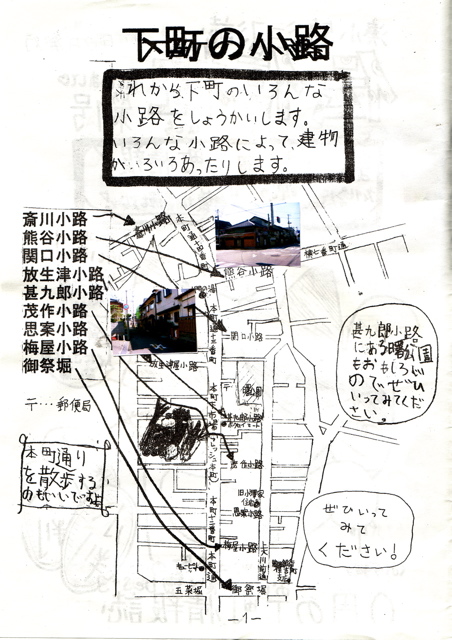 下町の小路
これから、下町のいろんな
小路をしょうかいします。
いろんな小路によって、建物
がいろいろあったりします。
斎川小路
熊谷小路
関口小路
放生津小路
甚九郎小路
茂作小路
思案小路
梅屋小路
御祭堀
〒…郵便局
本町通り
を散歩する
のもいいですよ
斎川小路
本町通十四番町
熊谷小路
本町通十三番町
関口小路
放生津屋小路
〒
甚九郎小路
本町市場
フレッシュ本町
茂作小路
旧小澤家
住宅
思案小路
本町通十二番町
梅屋小路
大川前通
本町通
五菜堀
御祭堀
甚九郎小路
にある公園
もおもしろい
のでぜひ
いってみてくだ
さい。
ぜひいって
みて
ください!
—1—